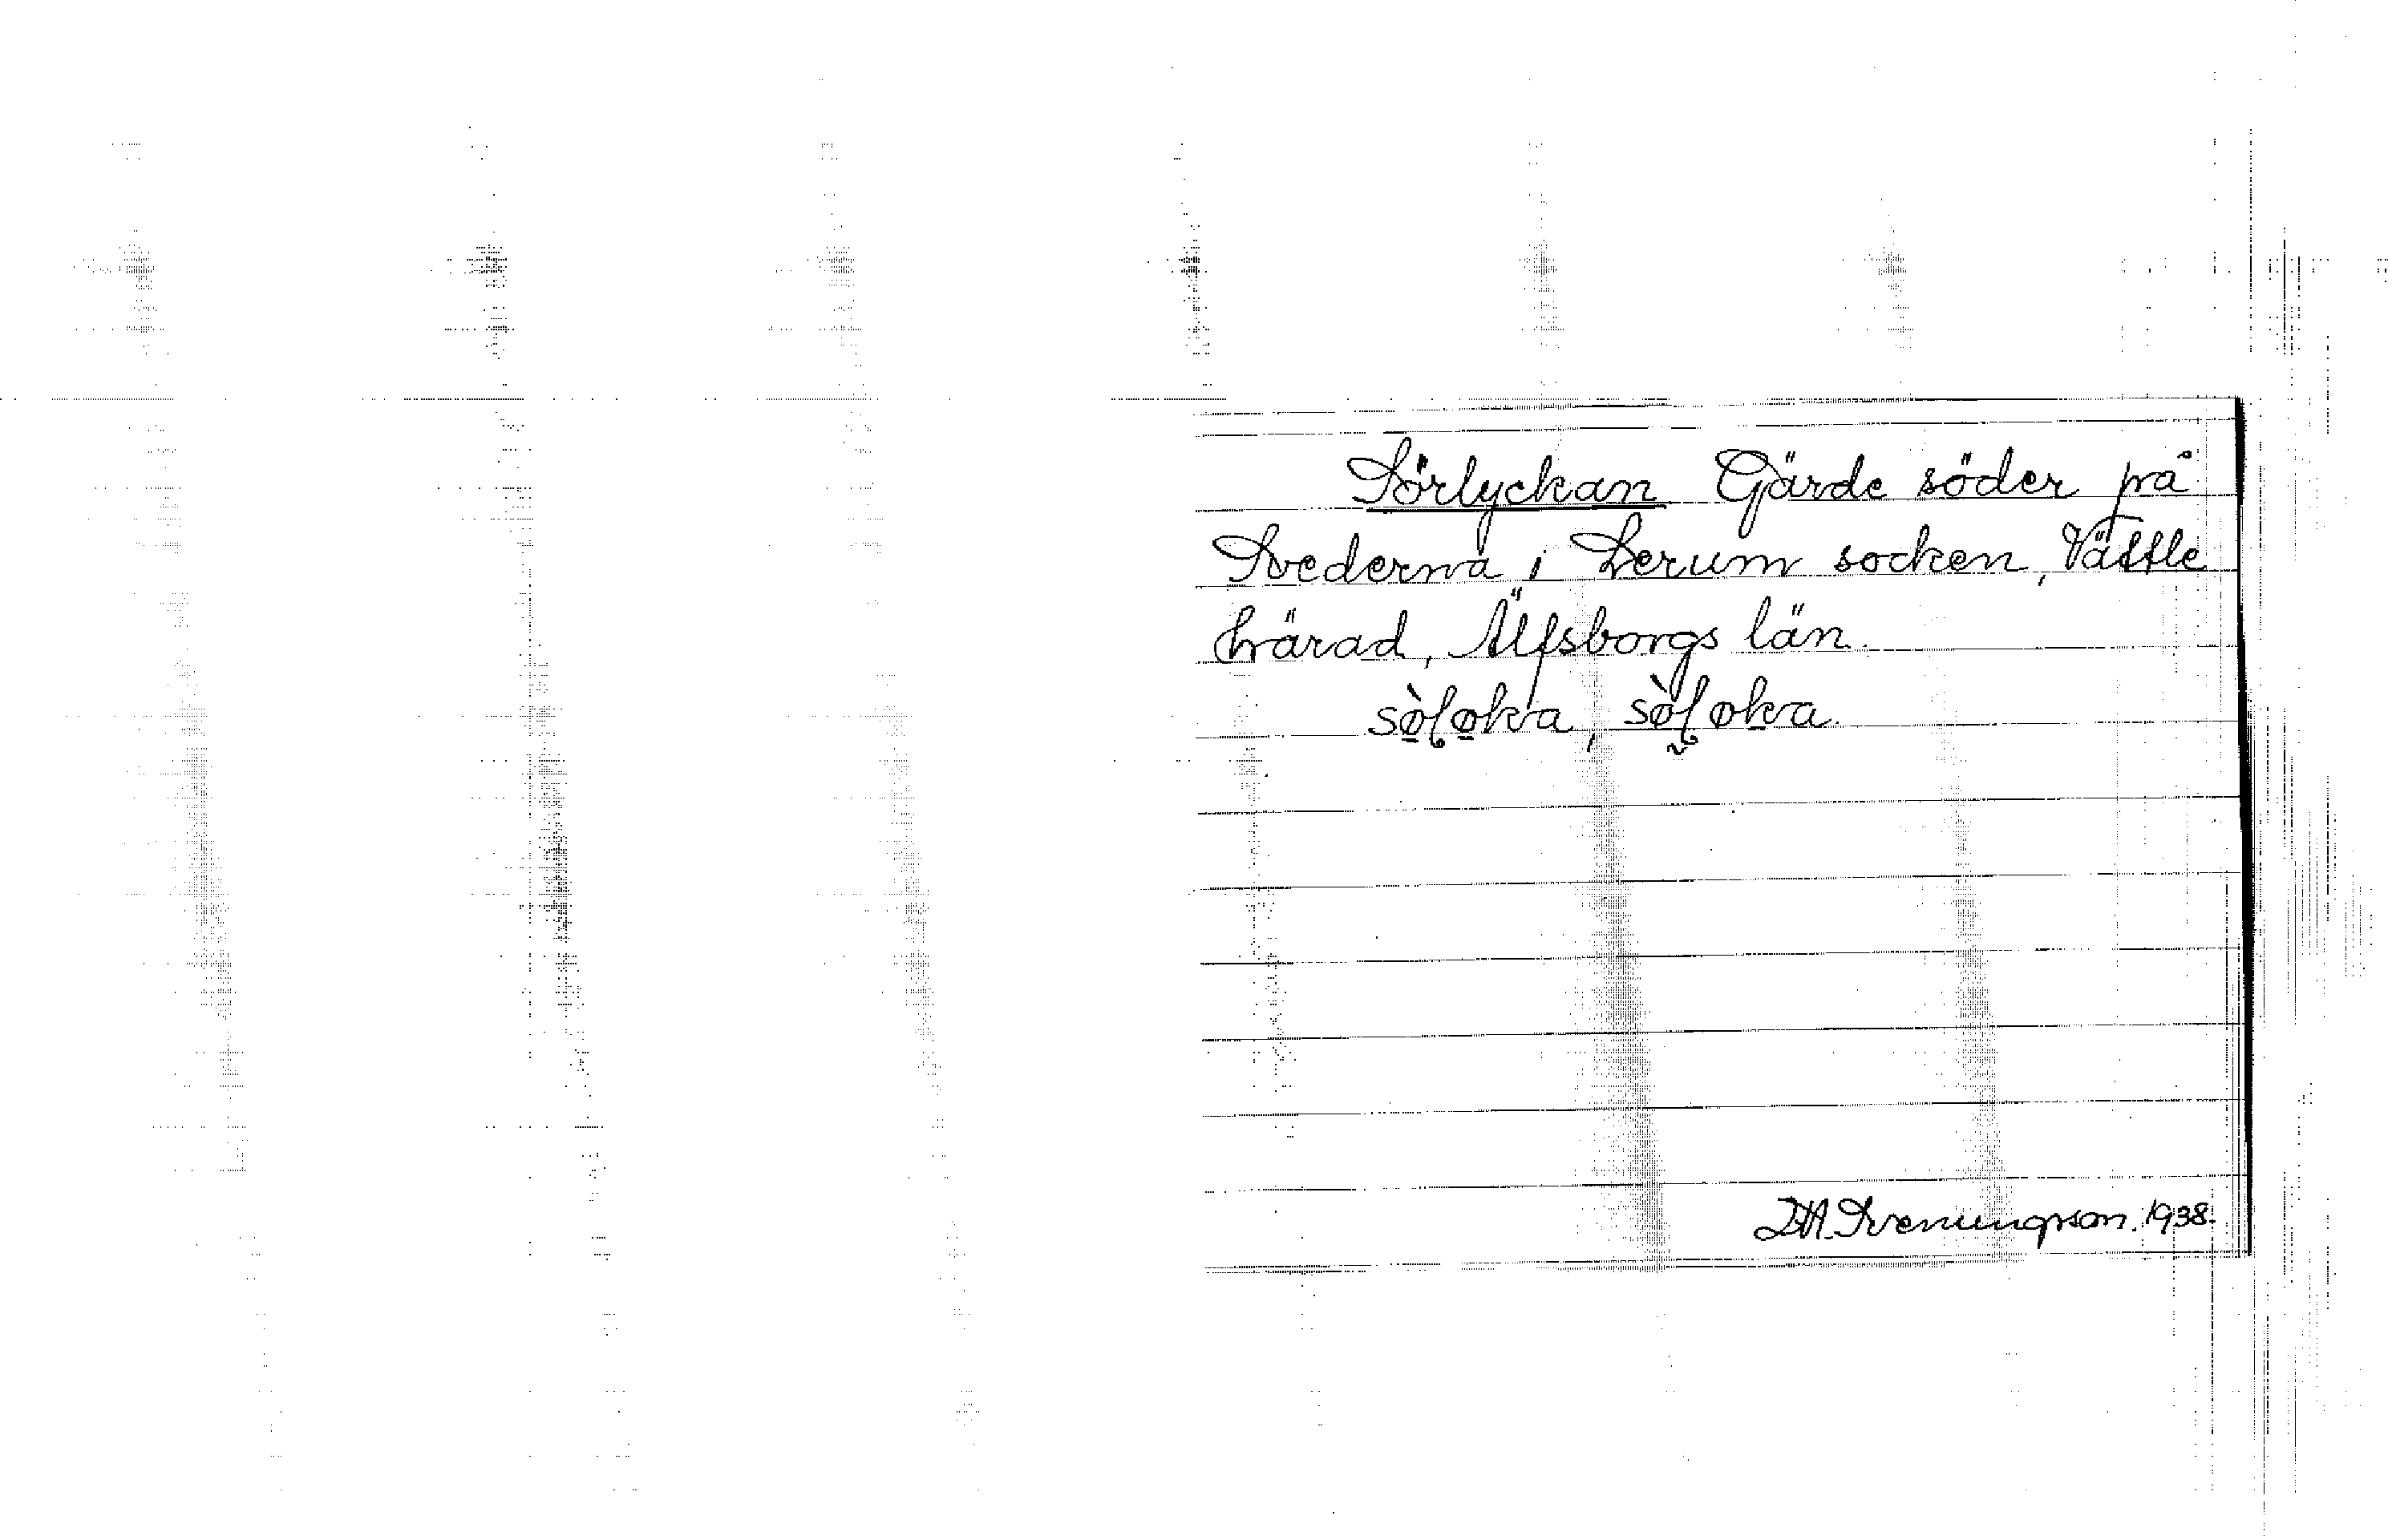 Sörlyckan Gärde söder på
Svederna i Lerum socken, Vättle
härad, Älfsborgs län.
sø̀løka, sø̀løka.
1938.